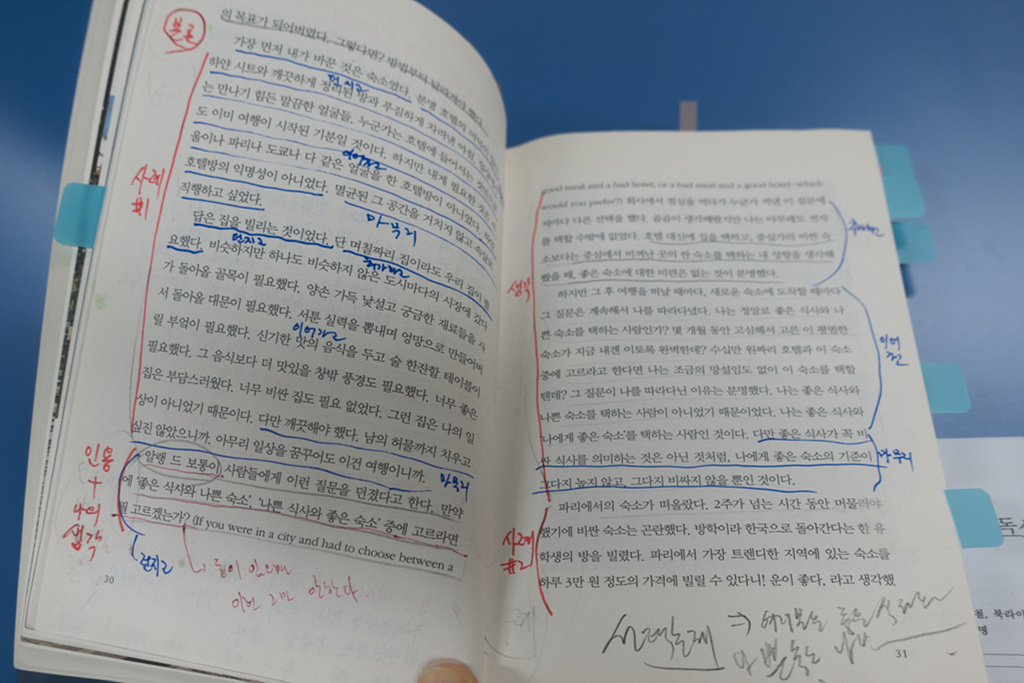 의 목표가 되어버렸다. 그렇다면? 방법부터
본론
가장 먼저 내가 바꾼 것은 숙소였다. 분명 호텔의
던지고
하얀 시트와 깨끗하게 정리된 방과 푸짐하게 차려낸 아침,
는 만나기 힘든 말끔한 얼굴들. 누군가는 호텔에 들어서는
도 이미 여행이 시작된 기분일 것이다. 하지만 내게 필요한 것은
이어간
울이나 파리나 도쿄나 다 같은 얼굴을 한 호텔방이 아니었다.
호텔방의 익명성이 아니었다. 멸균된 그 공간을 거치지 않고
사례
#1
직행하고 싶었다.
마무리
답은 집을 빌리는 것이었다. 단 며칠짜리 집이라도 우리 집이 필
던지고
요했다. 비슷하지만 하나도 비슷하지 않은 도시마다의 시장에 갔다
가 돌아올 골목이 필요했다. 양손 가득 낯설고 궁금한 재료들을 사
서 돌아올 대문이 필요했다. 서툰 실력을 뽐내며 엉망으로 만들어버
이어가고
릴 부엌이 필요했다. 신기한 맛의 음식을 두고 술 한잔할 테이블이
필요했다. 그 음식보다 더 맛있을 창밖 풍경도 필요했다. 너무 좋은
집은 부담스러웠다. 너무 비싼 집도 필요 없었다. 그런 집은 나의 일
상이 아니었기 때문이다. 다만 깨끗해야 했다. 남의 허물까지 치우고
싶진 않았으니까. 아무리 일상을 꿈꾸어도 이건 여행이니까.
마무리
인용
+
나의
생각
알랭 드 보통이 사람들에게 이런 질문을 던졌다고 한다. 만약
에 '좋은 식사와 나쁜 숙소', '나쁜 식사와 좋은 숙소' 중에 고르라면
뭘 고르겠는가? (If you were in a city and had to choose between a
던지고
30
good meal and a bad hotel, or a bad meal and a good hotel—which
would you prefer?) 회사에서 점심을 먹다가 누군가 꺼낸 이 질문에
저마다 다른 선택을 했다. 곰곰이 생각해봤지만 나는 아무래도 전자
를 택할 수밖에 없었다. 호텔 대신에 집을 택하고, 중심가의 비싼 숙
소보다는 중심에서 비껴난 곳의 싼 숙소를 택하는 내 성향을 생각해
봤을 때, 좋은 숙소에 대한 미련은 없는 것이 분명했다.
생각
하지만 그 후 여행을 떠날 때마다, 새로운 숙소에 도착할 때마다
그 질문은 계속해서 나를 따라다녔다. 나는 정말로 좋은 식사와 나
쁜 숙소를 택하는 사람인가? 몇 개월 동안 고심해서 고른 이 평범한
이어
간
숙소가 지금 내겐 이토록 완벽한데? 수십만 원짜리 호텔과 이 숙소
중에 고르라고 한다면 나는 조금의 망설임도 없이 이 숙소를 택할
텐데? 그 질문이 나를 따라다닌 이유는 분명했다. 나는 좋은 식사와
나쁜 숙소를 택하는 사람이 아니었기 때문이었다. 나는 좋은 식사와
'나에게 좋은 숙소'를 택하는 사람인 것이다. 다만 좋은 식사가 꼭 비
싼 식사를 의미하는 것은 아닌 것처럼, 나에게 좋은 숙소의 기준이
마무리
그다지 높지 않고, 그다지 비싸지 않을 뿐인 것이다.
파리에서의 숙소가 떠올랐다. 2주가 넘는 시간 동안 머물러야
했기에 비싼 숙소는 곤란했다. 방학이라 한국으로 돌아간다는 한 유
사례
#2
학생의 방을 빌렸다. 파리에서 가장 트렌디한 지역에 있는 숙소를
하루 3만 원 정도의 가격에 빌릴 수 있다니! 운이 좋다, 라고 생각했
31